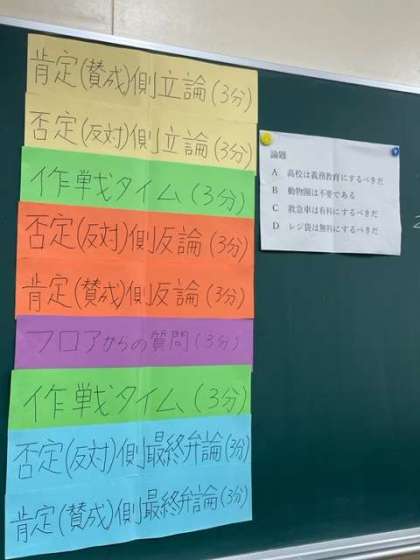 肯定(賛成)側立論(3分)
否定(反対)側立論(3分)
作戦タイム(3分)
否定(反対)側反論(3分)
肯定(賛成)側反論(3分)
フロアからの質問(3分)
作戦タイム(3分)
否定(反対)側最終弁論(3分)
肯定(賛成)側最終弁論(3分)
論題
A 高校は義務教育にするべきだ
B 動物園は不要である
C 救急車は有料にするべきだ
D レジ袋は無料にするべきだ